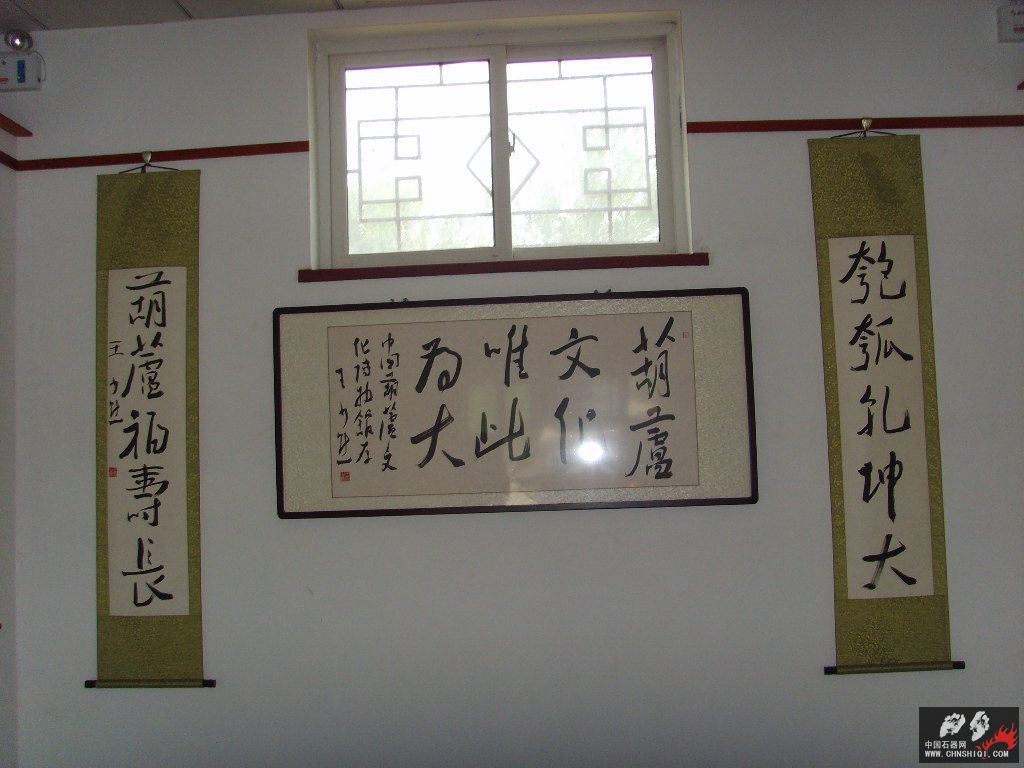 匏瓠孔坤大
葫蘆
文化
唯此
為大
中国葫蘆文
化博物館存
葫蘆福壽長
中国石器网
WWW.CHNSHIQI.COM